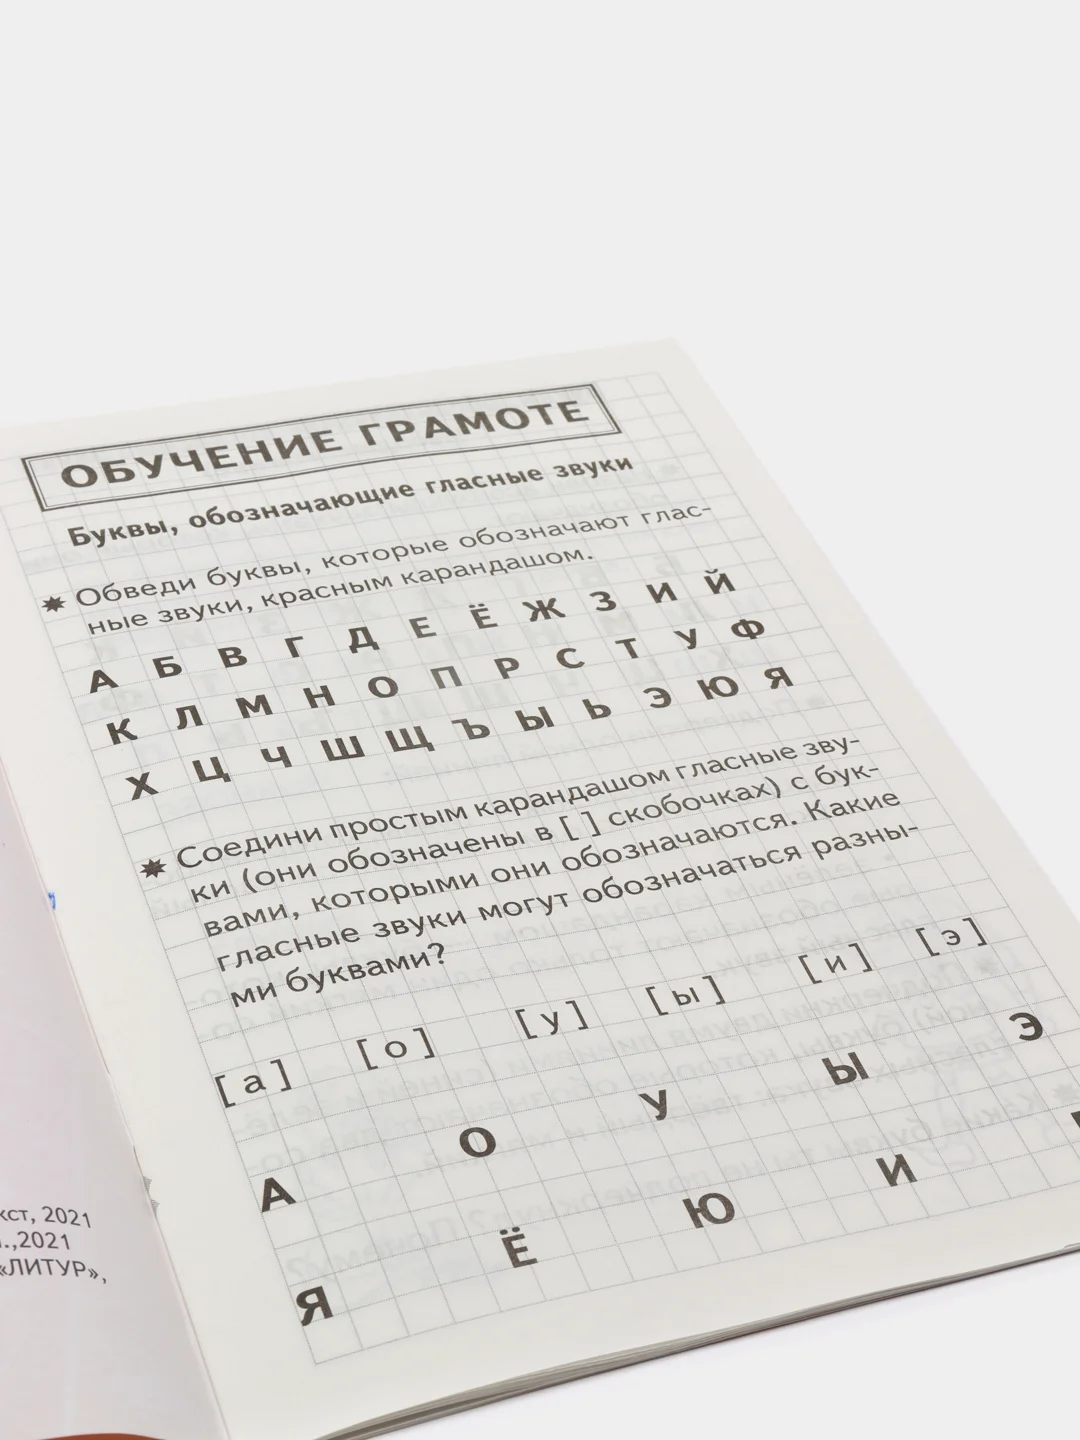 ОБУЧЕНИЕ ГРАМОТЕ
Буквы, обозначающие гласные звуки
Обведи буквы, которые обозначают глас-
ные звуки, красным карандашом.
А Б В Г Д Е Ё Ж З И Й
К Л М Н О П Р С Т У Ф
Х Ц Ч Ш Щ Ъ Ы Ь Э Ю Я
Соедини простым карандашом гласные зву-
ки (они обозначены в [ ] скобочках) с бук-
вами, которыми они обозначаются. Какие
гласные звуки могут обозначаться разны-
ми буквами?
[а] [о] [у] [ы] [и] [э]
А О У Ы Э
Я Ё Ю И
2021
2021
«ЛИТУР»,